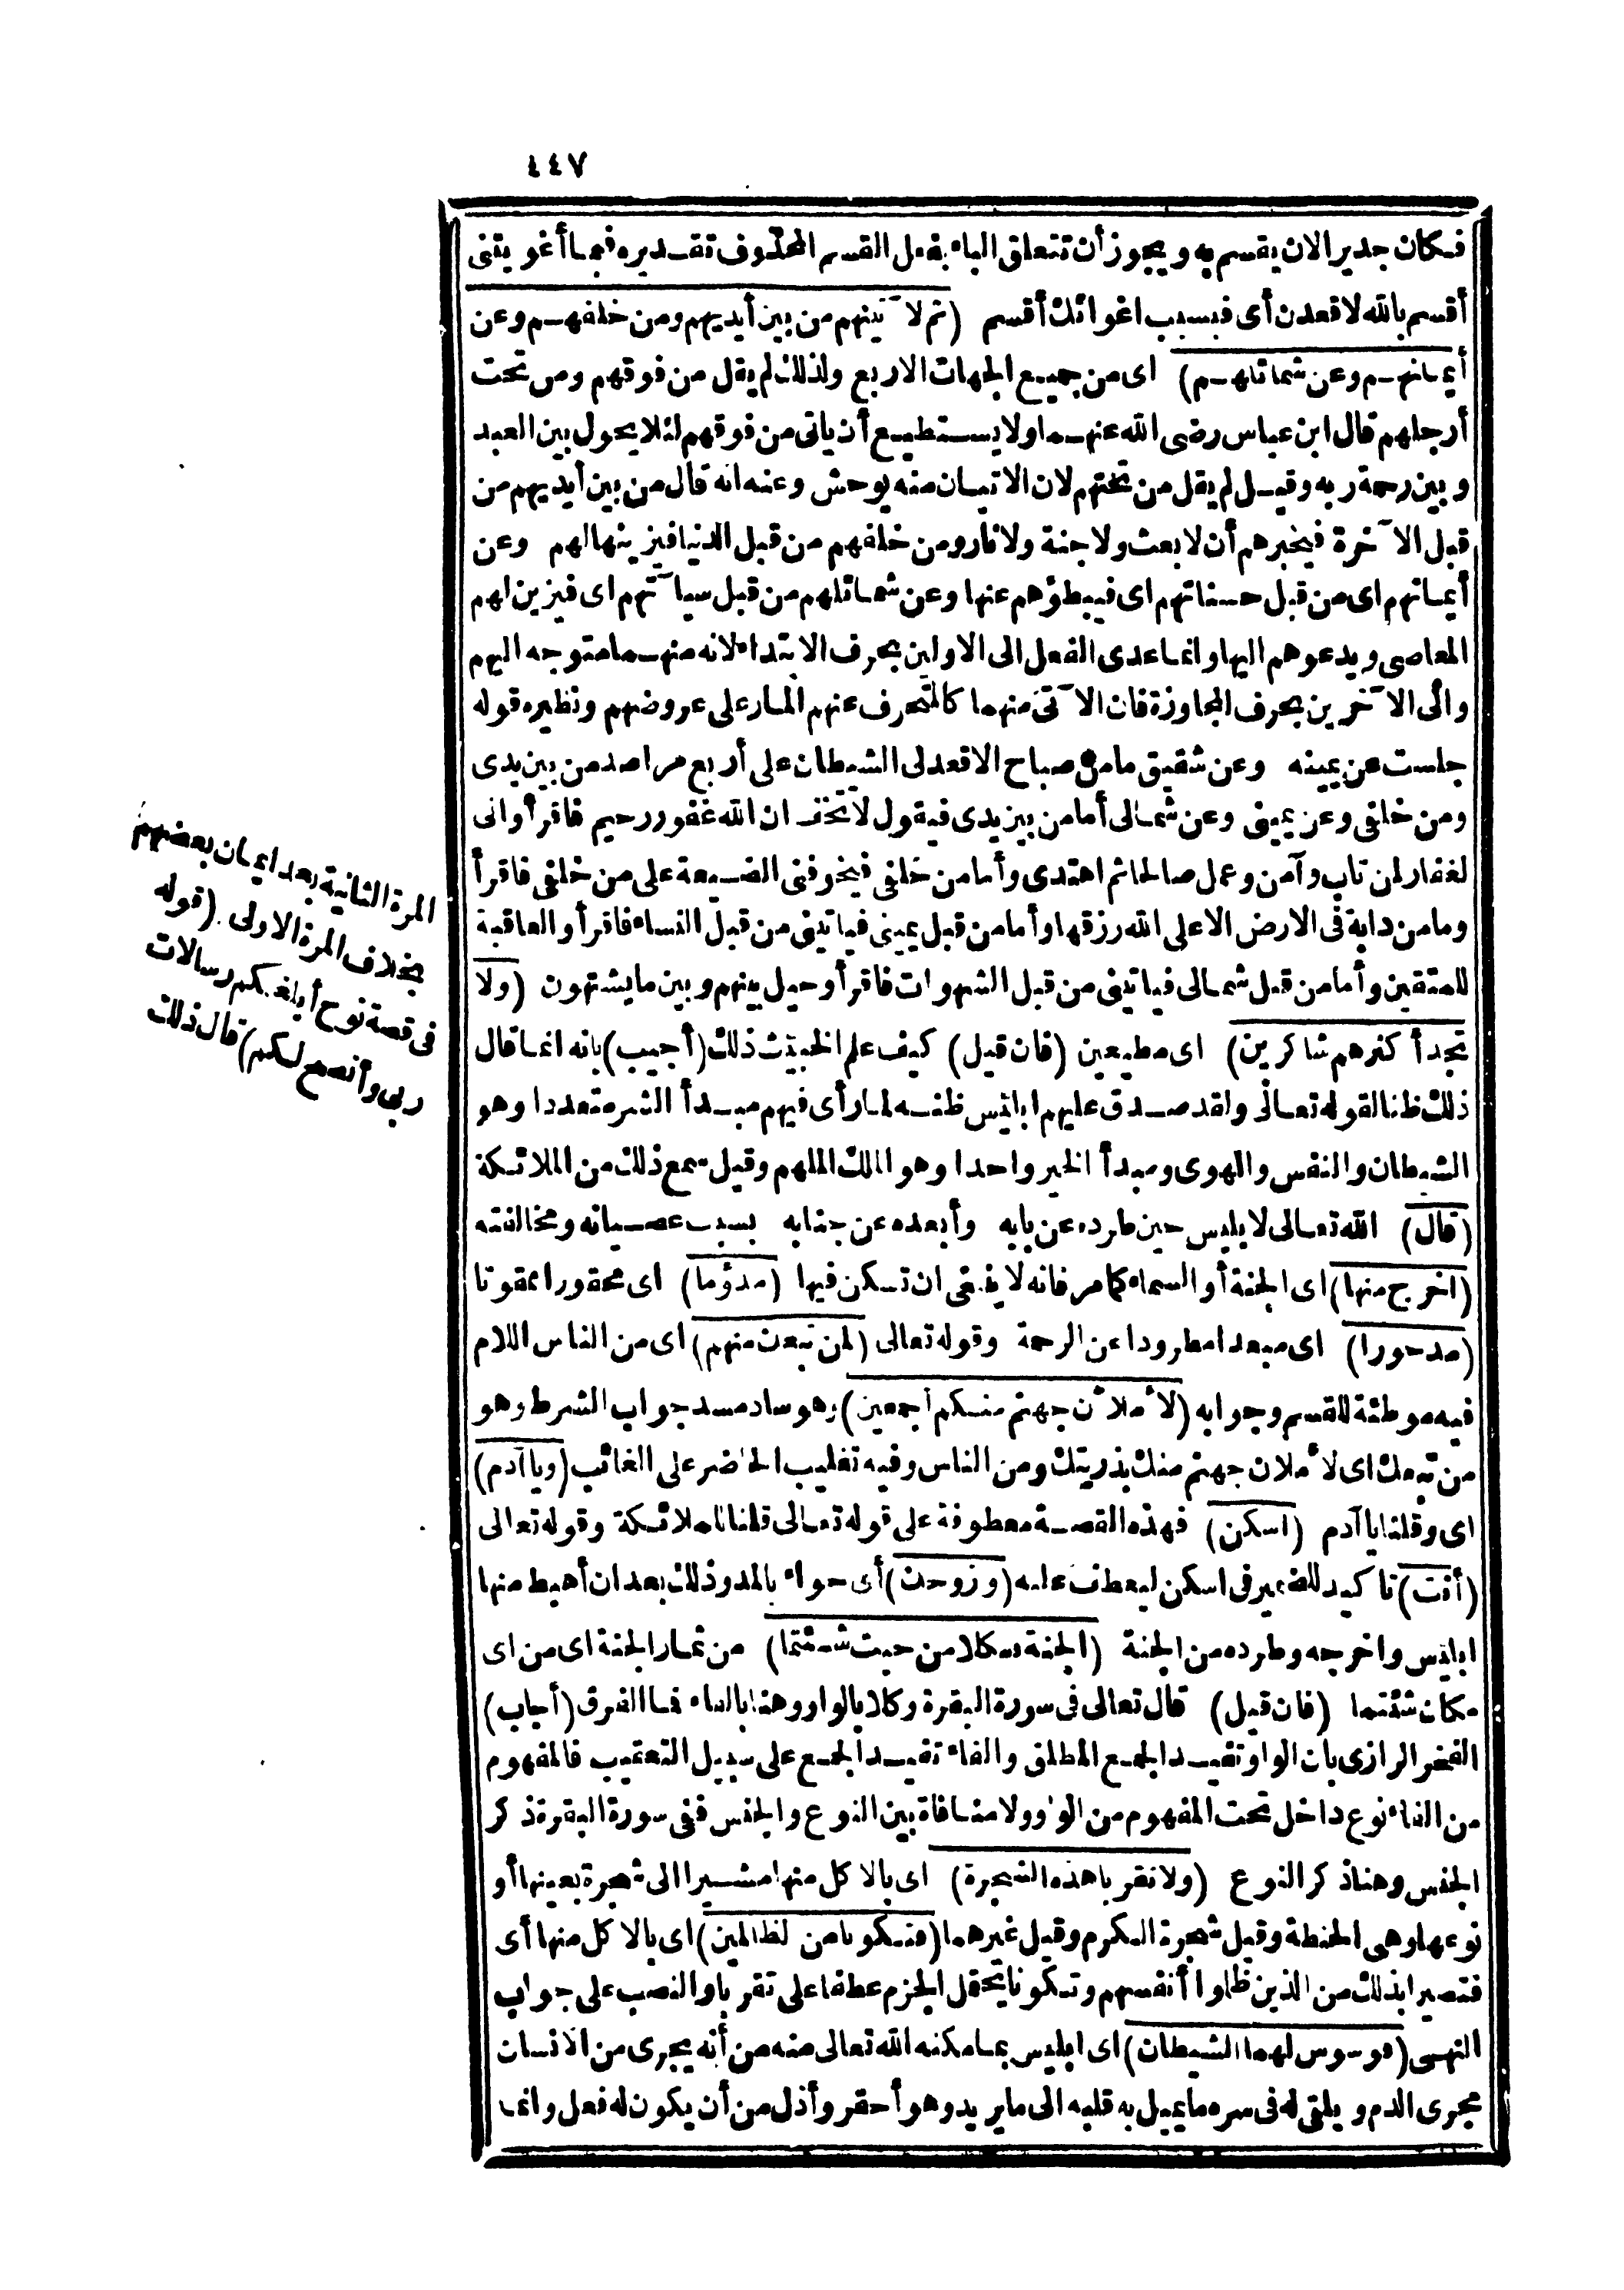 ٤٤٧
فكان جديرا لان يقسم به ويجوز أن تتعلق الباء بفعل القسم المحذوف تقديره فبما أغويتنى
أقسم بالله لاقعدن أى فبسبب اغوائك أقسم (ثم لآتينهم من بين أيديهم ومن خلفهم وعن
أيمانهم وعن شمائلهم) اى من جميع الجهات الاربع ولذلك لم يقل من فوقهم ومن تحت
أرجلهم قال ابن عباس رضى الله عنهما ولا يستطيع أن ياتى من فوقهم لئلا يحول بين العبد
وبين رحمة ربه وقيل لم يقل من تحتهم لان الاتيان منه يوحش وعنه انه قال من بين أيديهم من
قبل الآخرة فيخبرهم أن لا بعث ولا جنة ولا نار ومن خلفهم من قبل الدنيا فيزينها لهم وعن
أيمانهم اى من قبل حسناتهم اى فيبطؤهم عنها وعن شمائلهم من قبل سيآتهم اى فيزين لهم
المعاصى ويدعوهم اليها وانما عدى الفعل الى الاولين بحرف الابتداء لانه منهما متوجه اليهم
والى الآخرين بحرف المجاوزة فان الآتى منهما كالمنحرف عنهم المار على عروضهم ونظيره قوله
جلست عن يمينه وعن شقيق ما من صباح الا قعد لى الشيطان على أربع مراصد من بين يدى
ومن خلفى وعن يمينى وعن شمالى أما من بين يدى فيقول لا تخف ان الله غفور رحيم فاقرأ وانى
لغفار لمن تاب وآمن وعمل صالحا ثم اهتدى وأما من خلفى فيخوفنى الضيعة على من خلفى فاقرأ
وما من دابة فى الارض الا على الله رزقها وأما من قبل يمينى فياتينى من قبل النساء فاقرأ والعاقبة
للمتقين وأما من قبل شمالى فياتينى من قبل الشهوات فاقرأ وحيل بينهم وبين ما يشتهون (ولا
تجد أكثرهم شاكرين) اى مطيعين (فان قيل) كيف علم الخبيث ذلك (أجيب) بانه انما قال
ذلك ظنا لقوله تعالى ولقد صدق عليهم ابليس ظنه لما رأى فيهم مبدأ الشر متعددا وهو
الشيطان والنفس والهوى ومبدأ الخير واحدا وهو الملك الملهم وقيل سمع ذلك من الملائكة
(قال) الله تعالى لابليس حين طرده عن بابه وأبعده عن جنابه بسبب عصيانه ومخالفته
(اخرج منها) اى الجنة أو السماء كما مر فانه لا ينبغى ان تسكن فيها (مذؤما) اى محقورا ممقوتا
(مدحورا) اى مبعدا مطرودا عن الرحمة وقوله تعالى (لمن تبعك منهم) اى من الناس اللام
فيه موطئة للقسم وجوابه (لأملأن جهنم منكم أجمعين) وهو ساد مسد جواب الشرط وهو
من تبعك اى لأملان جهنم منك بذريتك ومن الناس وفيه تغليب الحاضر على الغائب (ويا آدم)
اى وقلنا يا آدم (اسكن) فهذه القصة معطوفة على قوله تعالى قلنا للملائكة وقوله تعالى
(أنت) تاكيد للضمير فى اسكن ليعطف عليه (وزوجك) أى حواء بالمد وذلك بعد ان أهبط منها
ابليس واخرجه وطرده من الجنة (الجنة فكلا من حيث شئتما) من ثمار الجنة اى من اى
مكان شئتما (فان قيل) قال تعالى فى سورة البقرة وكلا بالواو وهنا بالفاء فما الفرق (أجاب)
الفخر الرازى بان الواو تفيد الجمع المطلق والفاء تفيد الجمع على سبيل التعقيب فالمفهوم
من الفاء نوع داخل تحت المفهوم من الواو ولا منافاة بين النوع والجنس ففى سورة البقرة ذكر
الجنس وهنا ذكر النوع (ولا تقربا هذه الشجرة) اى بالاكل منها مشيرا الى شجرة بعينها أو
نوعها وهى الحنطة وقيل شجرة الكرم وقيل غيرهما (فتكونا من الظالمين) اى بالاكل منها أى
فتصيرا بذلك من الذين ظلموا أنفسهم وتكونا يحتمل الجزم عطفا على تقربا والنصب على جواب
النهى (فوسوس لهما الشيطان) اى ابليس بما مكنه الله تعالى منه من أنه يجرى من الانسان
مجرى الدم ويلقى له فى سره ما يميل به قلبه الى ما يريد وهو أحقر وأذل من أن يكون له فعل وانما
المرة الثانية بعد ايمان بعضهم
بخلاف المرة الاولى. (قوله
فى قصة نوح أبلغكم رسالات
ربى وأنصح لكم) قال ذلك